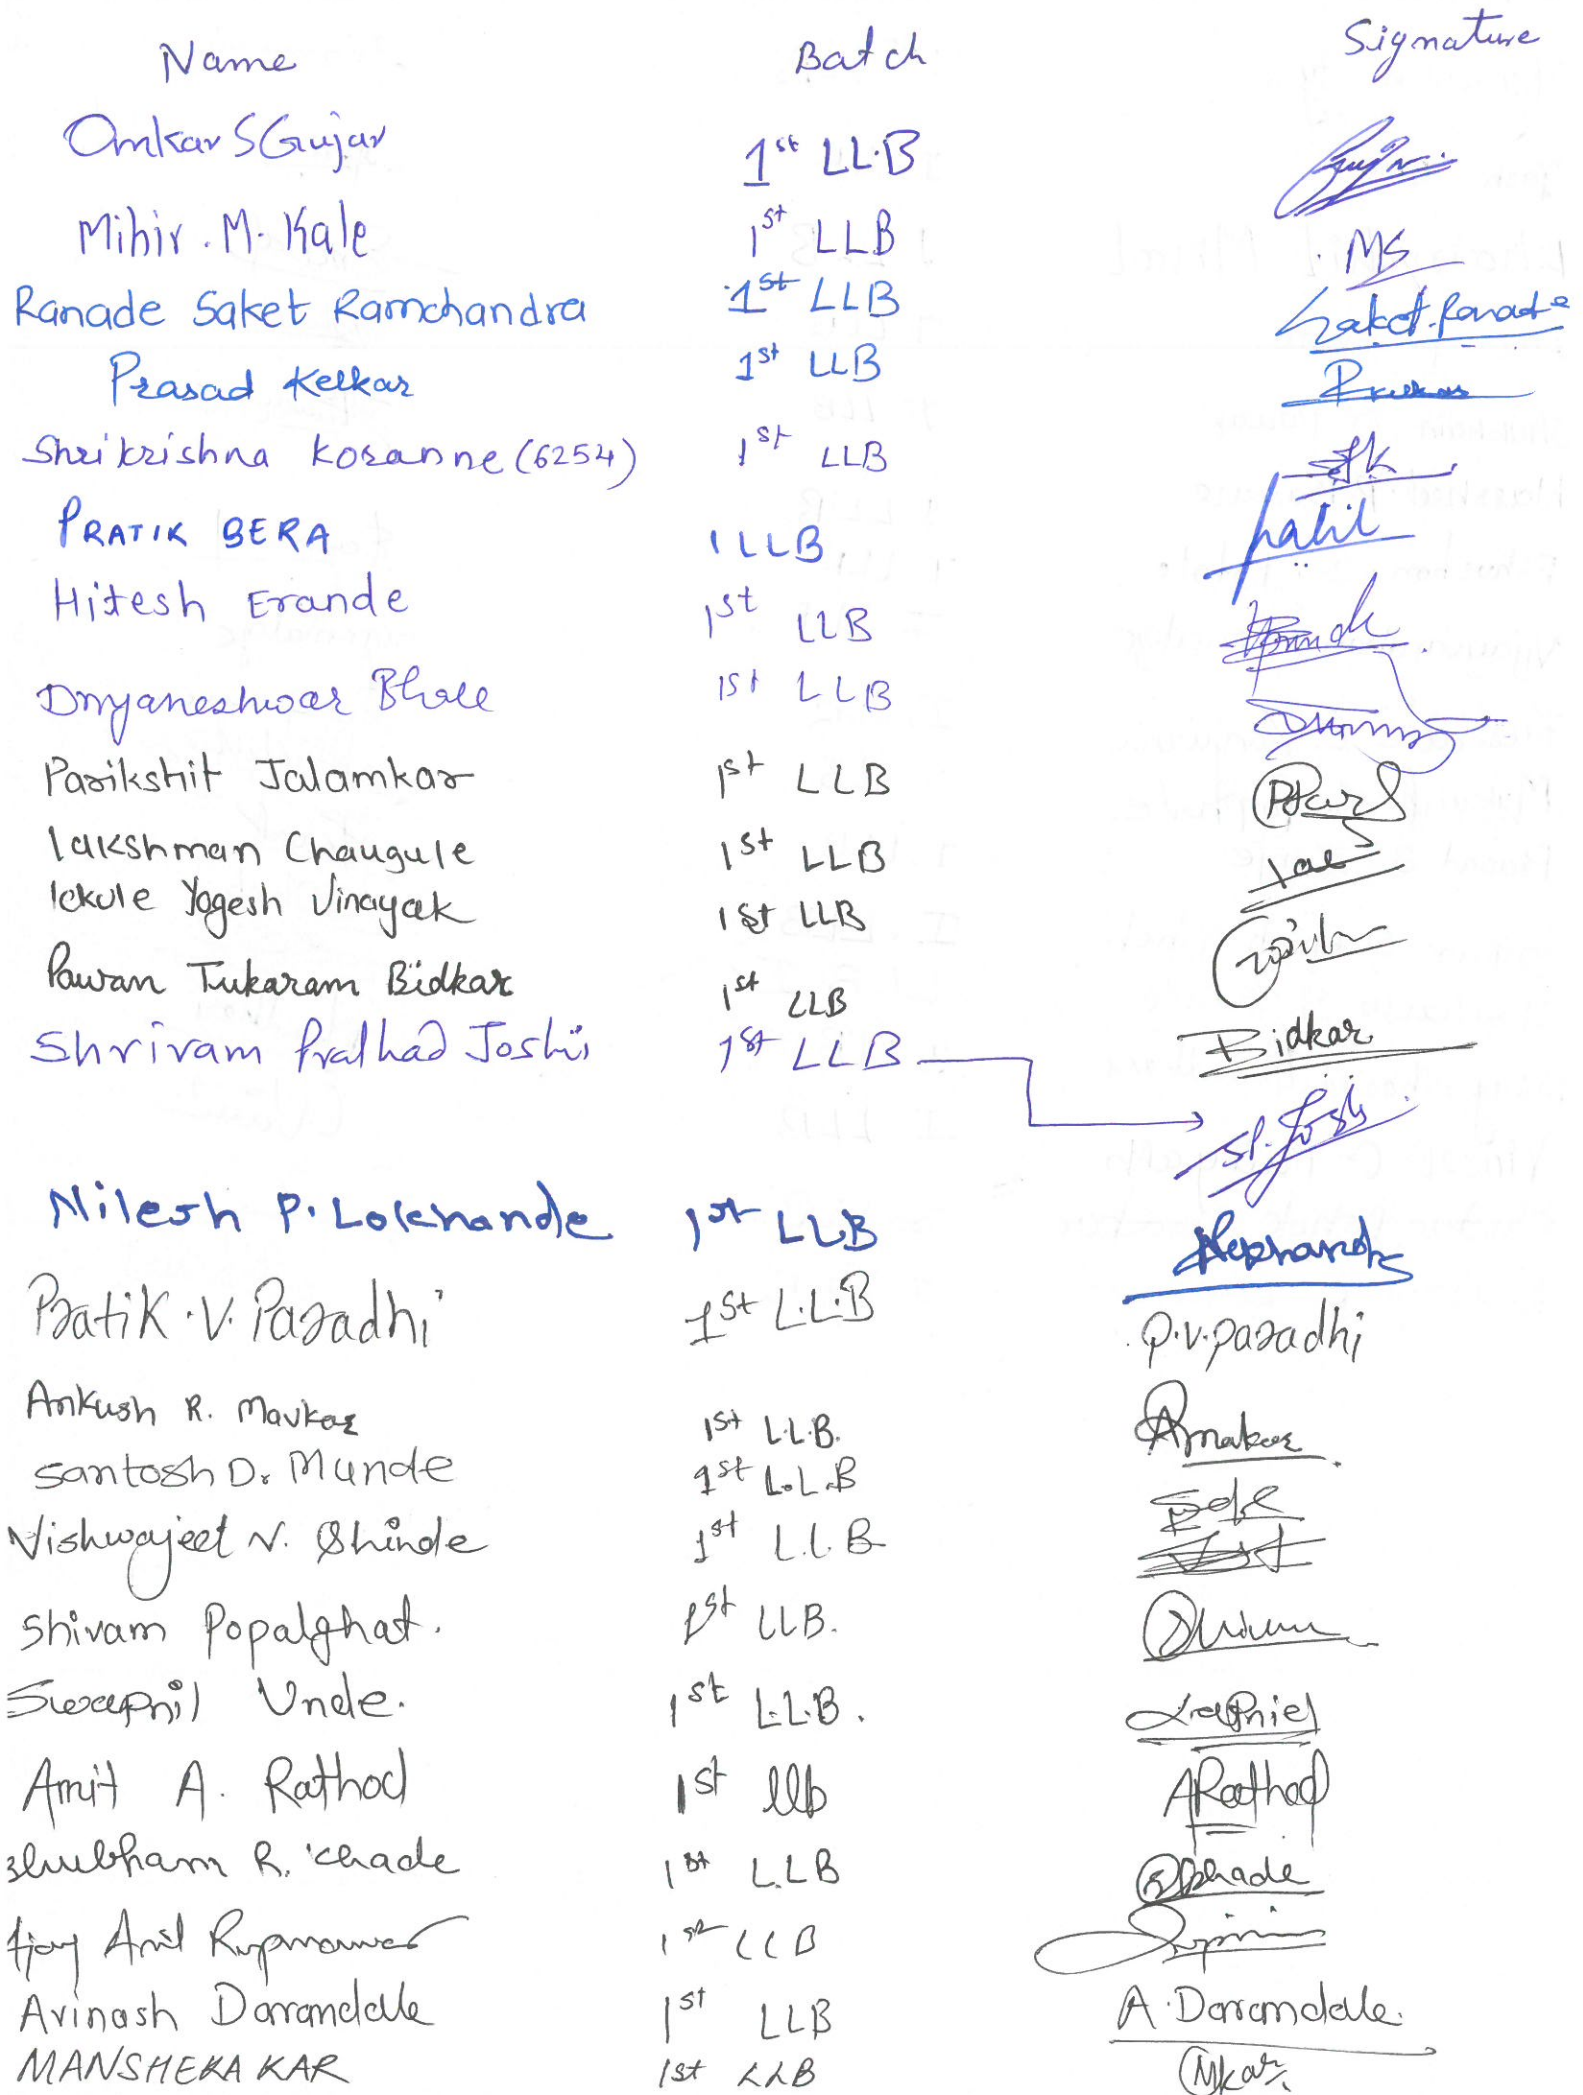 Name Batch Signature
Omkar S Gujar 1st LL.B
Mihir . M. Kale 1st LLB MS
Ranade Saket Ramchandra 1st LLB Saket Ranade
Prasad Kelkar 1st LLB PKelkar
Shrikrishna Koranne (6254) 1st LLB SK
PRATIK BERA 1 LLB
Hitesh Erande 1st LLB
Dnyaneshwar Bhale 1st LLB
Parikshit Jalamkar 1st LLB
Lakshman Chaugule 1st LLB
Yogesh Vinayak 1st LLB
Pawan Tukaram Bidkar 1st LLB Bidkar
Shrivam Pralhad Joshi 1st LLB SP. Joshi
Nilesh P. Lokhande 1st LLB
Pratik . V. Paradhi 1st L.L.B P.V.paradhi
Ankush R. Mavkar 1st L.L.B.
Santosh D. Munde 1st L.L.B
Vishwajeet N. Shinde 1st L.L.B
Shivam Popalghat. 1st LLB.
Swapnil Unde. 1st L.L.B.
Amit A. Rathod 1st llb ARathod
Shubham R. 1st L.LB
Anil 1st LLB
Avinash Darandale 1st LLB A. Darandale.
MANSHEKAKAR 1st LLB